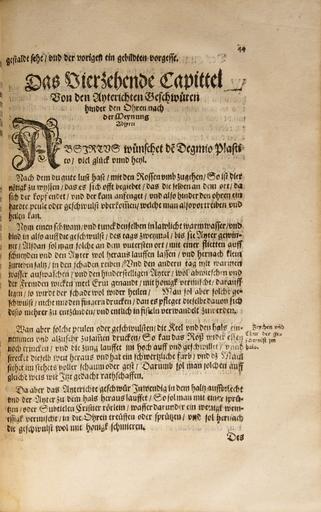 44
gestalt seht / und der vorigen ein gebildten vorgesse.
Das Vierzehende Capittel
Von den Ayterichten Geschwüren
hinder den Ohren nach
der Meynung
Absyrti
ABSIRTUS wünschet dē Degnio Plasti-
co / viel glück unnd heyl.
Nach dem du gute lust hast / mit den Rossen umb zugehen / So ist dir
nötig zu wissen / daß es sich offt begiebet / daß die selben an dem ort / da
sich der kopf endet / und der kam anfenget / und also hinder den ohren ein
harte peule oder geschwulst uberkommen / welche man also vertreiben und
heilen kan.
Nim einen schwam / und tunck denselben in law licht warm wasser / und
bind in also auff die geschwulst / des tags zweymal / biß sie Ayter gewin-
net / Alsdan sol man solche an dem untersten ort / mit einer flietten auff
schneyden und den Ayter wol heraus lauffen lassen / und hernach klein
zurieben saltz / in den schaden reiben / Und den andern tag mit warmen
wasser außwaschen / und den hinderstelligen Ayter / wol abwischen und
der Fremden wicken meel Erui genandt / mit honigk vermischt / darauff
legen / so wirdt der schade wol wider heilen / Man sol aber solche ge-
schwulst / nicht mit den fingern drucken / dan es pfleget dieselbe davon sich
desto mehrer zu entzünden / und entlich in fisteln verwandelt zuwerden.
Wan aber solche peulen oder geschwülsten / die Keel und den hals ein-
nimmen und
trocken / und die zung lauffet im hoch auff und geschwollet / und
strecket dieselb weit heraus und hat ein schwertzliche farb / und das Maul
stehet im stehets voller schaum oder gest / Darumb sol man solchen auff
gleich weis wie Itzt gedacht rathschaffen.
Da aber das Ayterichte geschwür Inwendig in den haltz auffbricht
und der Ayter zu dem hals heraus lauffet / So sol man mit einer sprü-
tzen / oder Subtielen Cristier rörlein / wasser darunder ein wenigk wein-
essigk vermischt / in die Ohren treüffen oder sprützen / und sol hernach
die geschwulst wol mit honigk schmieren.
Des